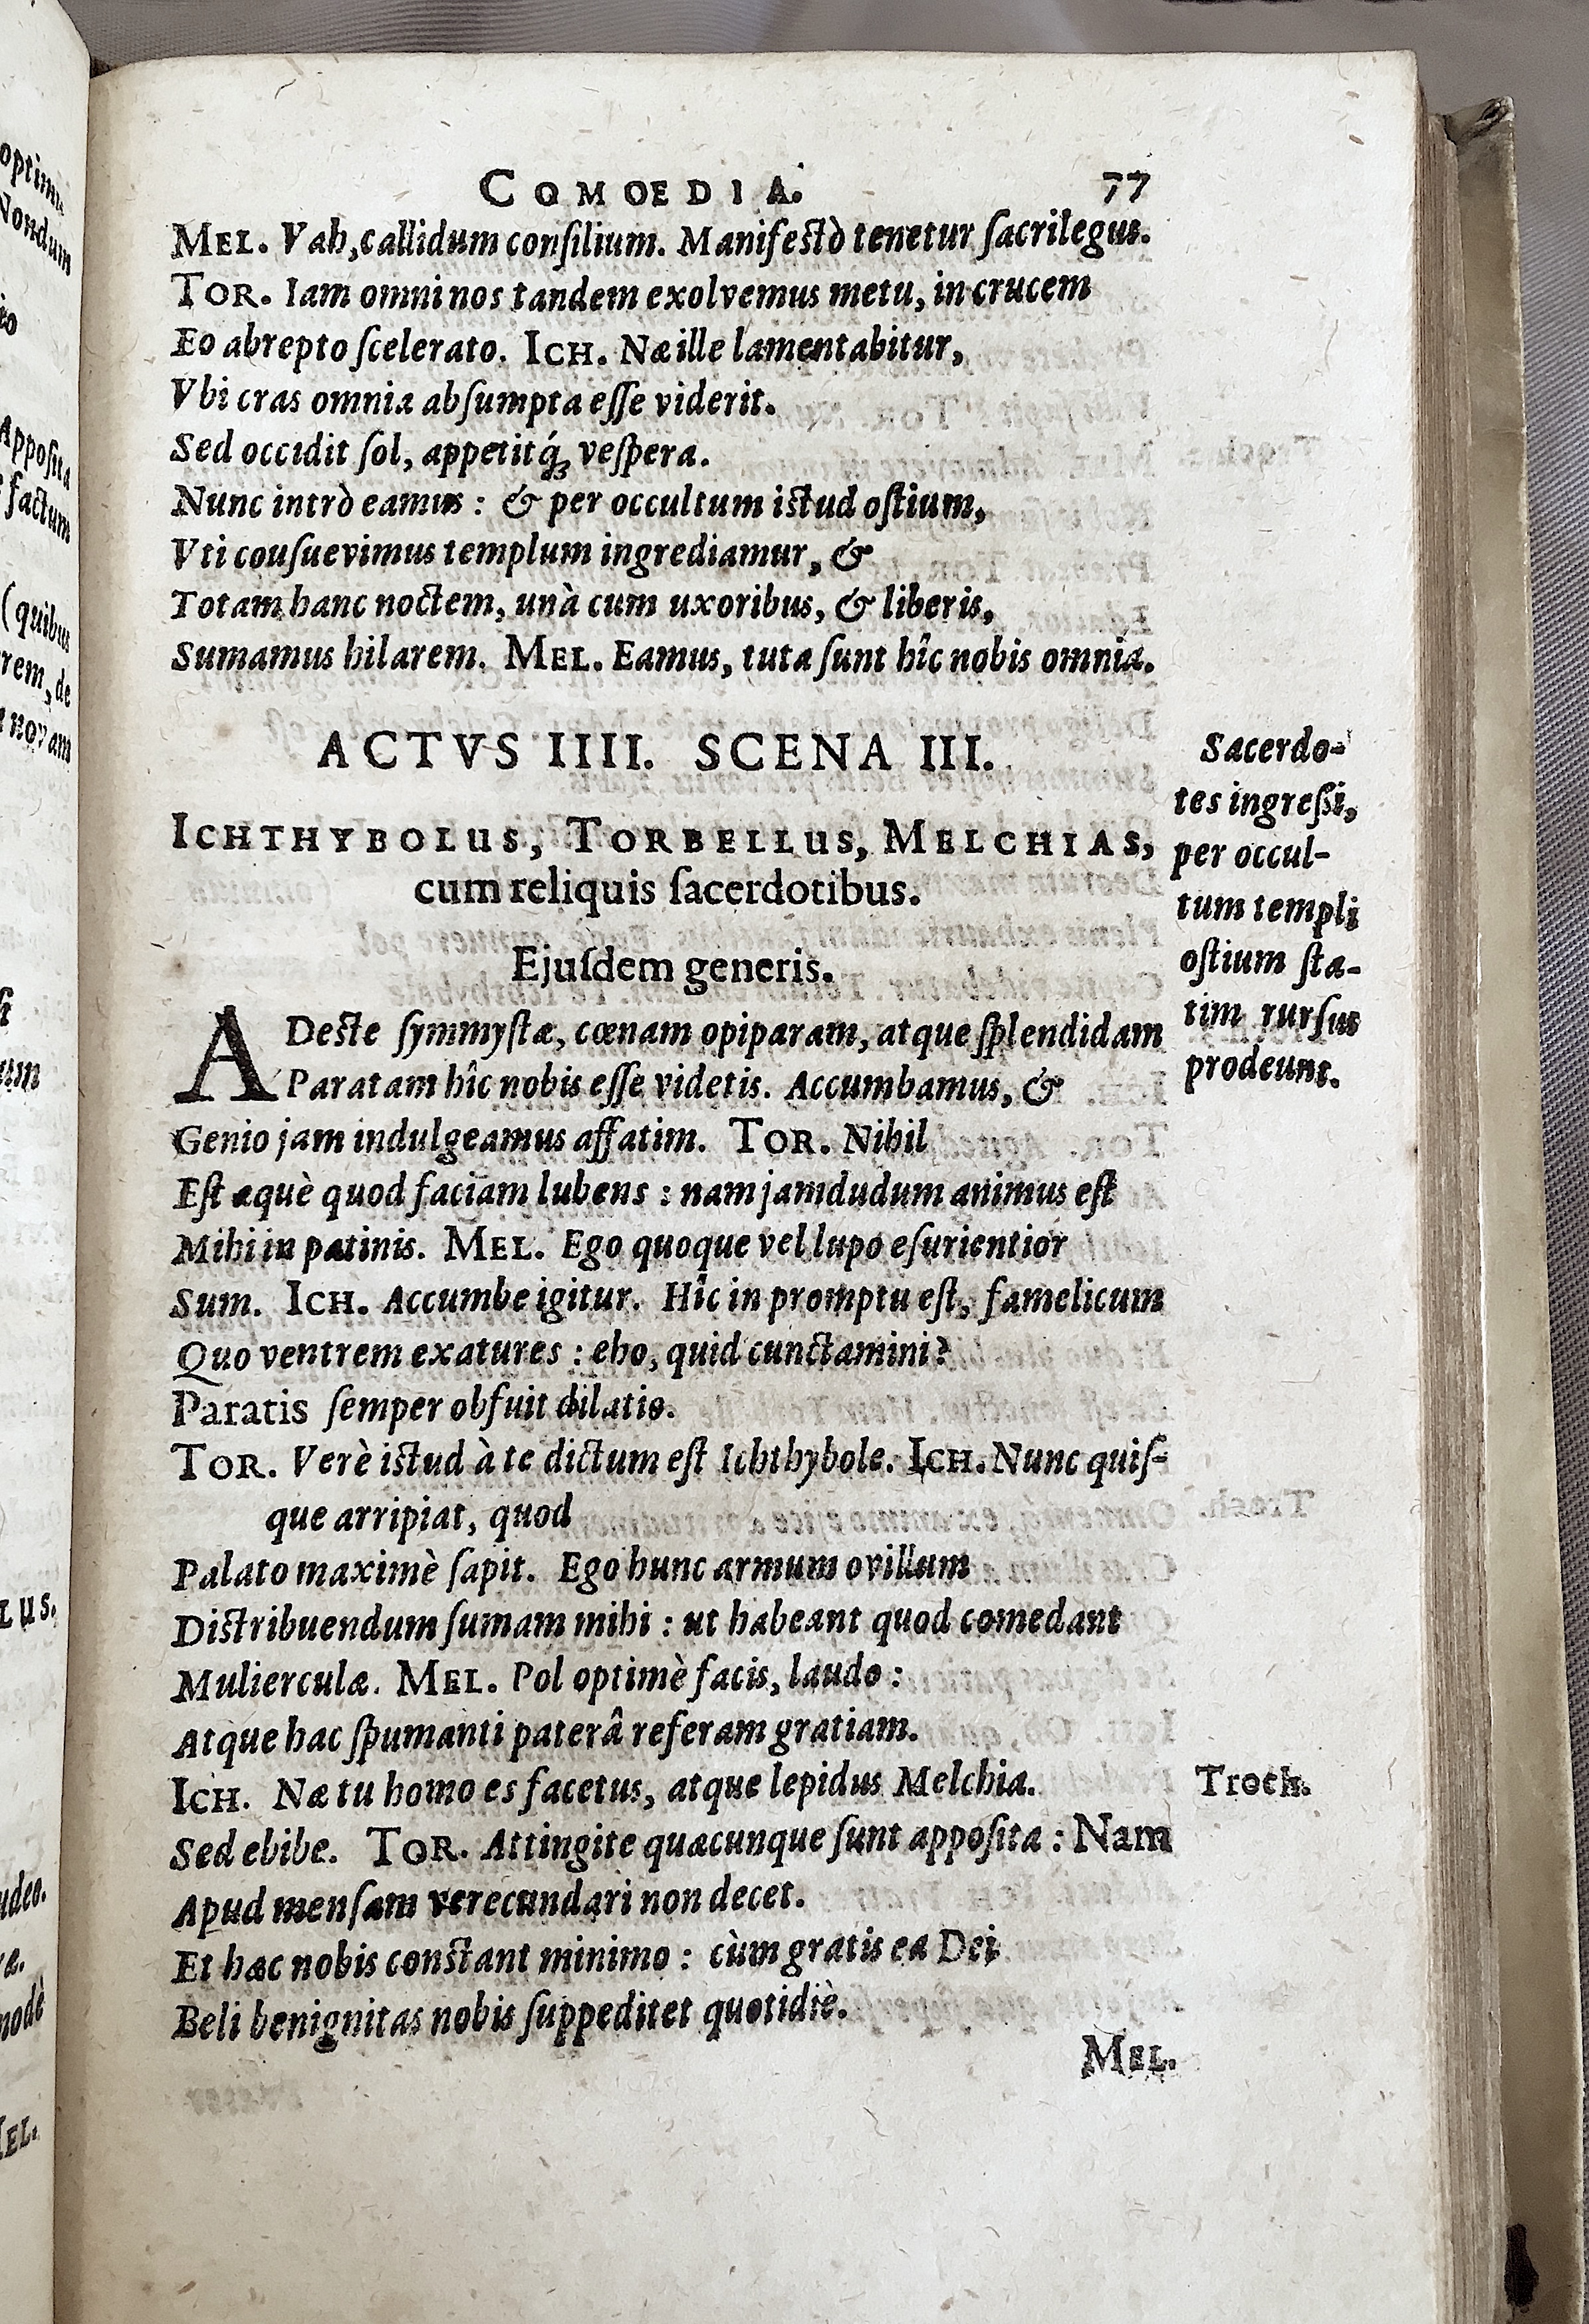 COMOEDIA. 77
MEL. Vah, callidum conſilium. Manifeſtò tenetur ſacrilegus.
TOR. Iam omni nos tandem exolvemus metu, in crucem
Eo abrepto ſcelerato. ICH. Næ ille lamentabitur,
Vbi cras omnia abſumpta eſſe viderit.
Sed occidit ſol, appetitq́ꝫ veſpera.
Nunc intrò eamus : & per occultum iſtud oſtium,
Vti couſuevimus templum ingrediamur, &
Totam hanc noctem, unà cum uxoribus, & liberis,
Sumamus hilarem. MEL. Eamus, tuta ſunt hîc nobis omnia.
ACTVS IIII. SCENA III.
ICHTHYBOLUS, TORBELLUS, MELCHIAS,
cum reliquis ſacerdotibus.
Ejuſdem generis.
ADeſte ſymmyſtæ, cœnam opiparam, atque ſplendidam
Paratam hîc nobis eſſe videtis. Accumbamus, &
Genio jam indulgeamus affatim. TOR. Nihil
Eſt æquè quod faciam lubens : nam jamdudum animus eſt
Mihi in patinis. MEL. Ego quoque vel lupo eſurientior
Sum. ICH. Accumbe igitur. Hîc in promptu eſt, famelicum
Quo ventrem exatures : eho, quid cunctamini?
Paratis ſemper obfuit dilatio.
TOR. Verè iſtud à te dictum eſt Ichthybole. ICH. Nunc quiſ-
que arripiat, quod
Palato maximè ſapit. Ego hunc armum ovillum
Diſtribuendum ſumam mihi : ut habeant quod comedant
Mulierculæ. MEL. Pol optimè facis, laudo :
Atque hac ſpumanti paterâ referam gratiam.
ICH. Næ tu homo es facetus, atque lepidus Melchia.
Sed ebibe. TOR. Attingite quæcunque ſunt appoſita : Nam
Apud menſam verecundari non decet.
Et hæc nobis conſtant minimo : cùm gratis ea Dei
Beli benignitas nobis ſuppeditet quotidiè.
MEL.
Sacerdo-
tes ingreſſi,
per occul-
tum templi
oſtium ſta-
tim rurſus
prodeunt.
Troch.